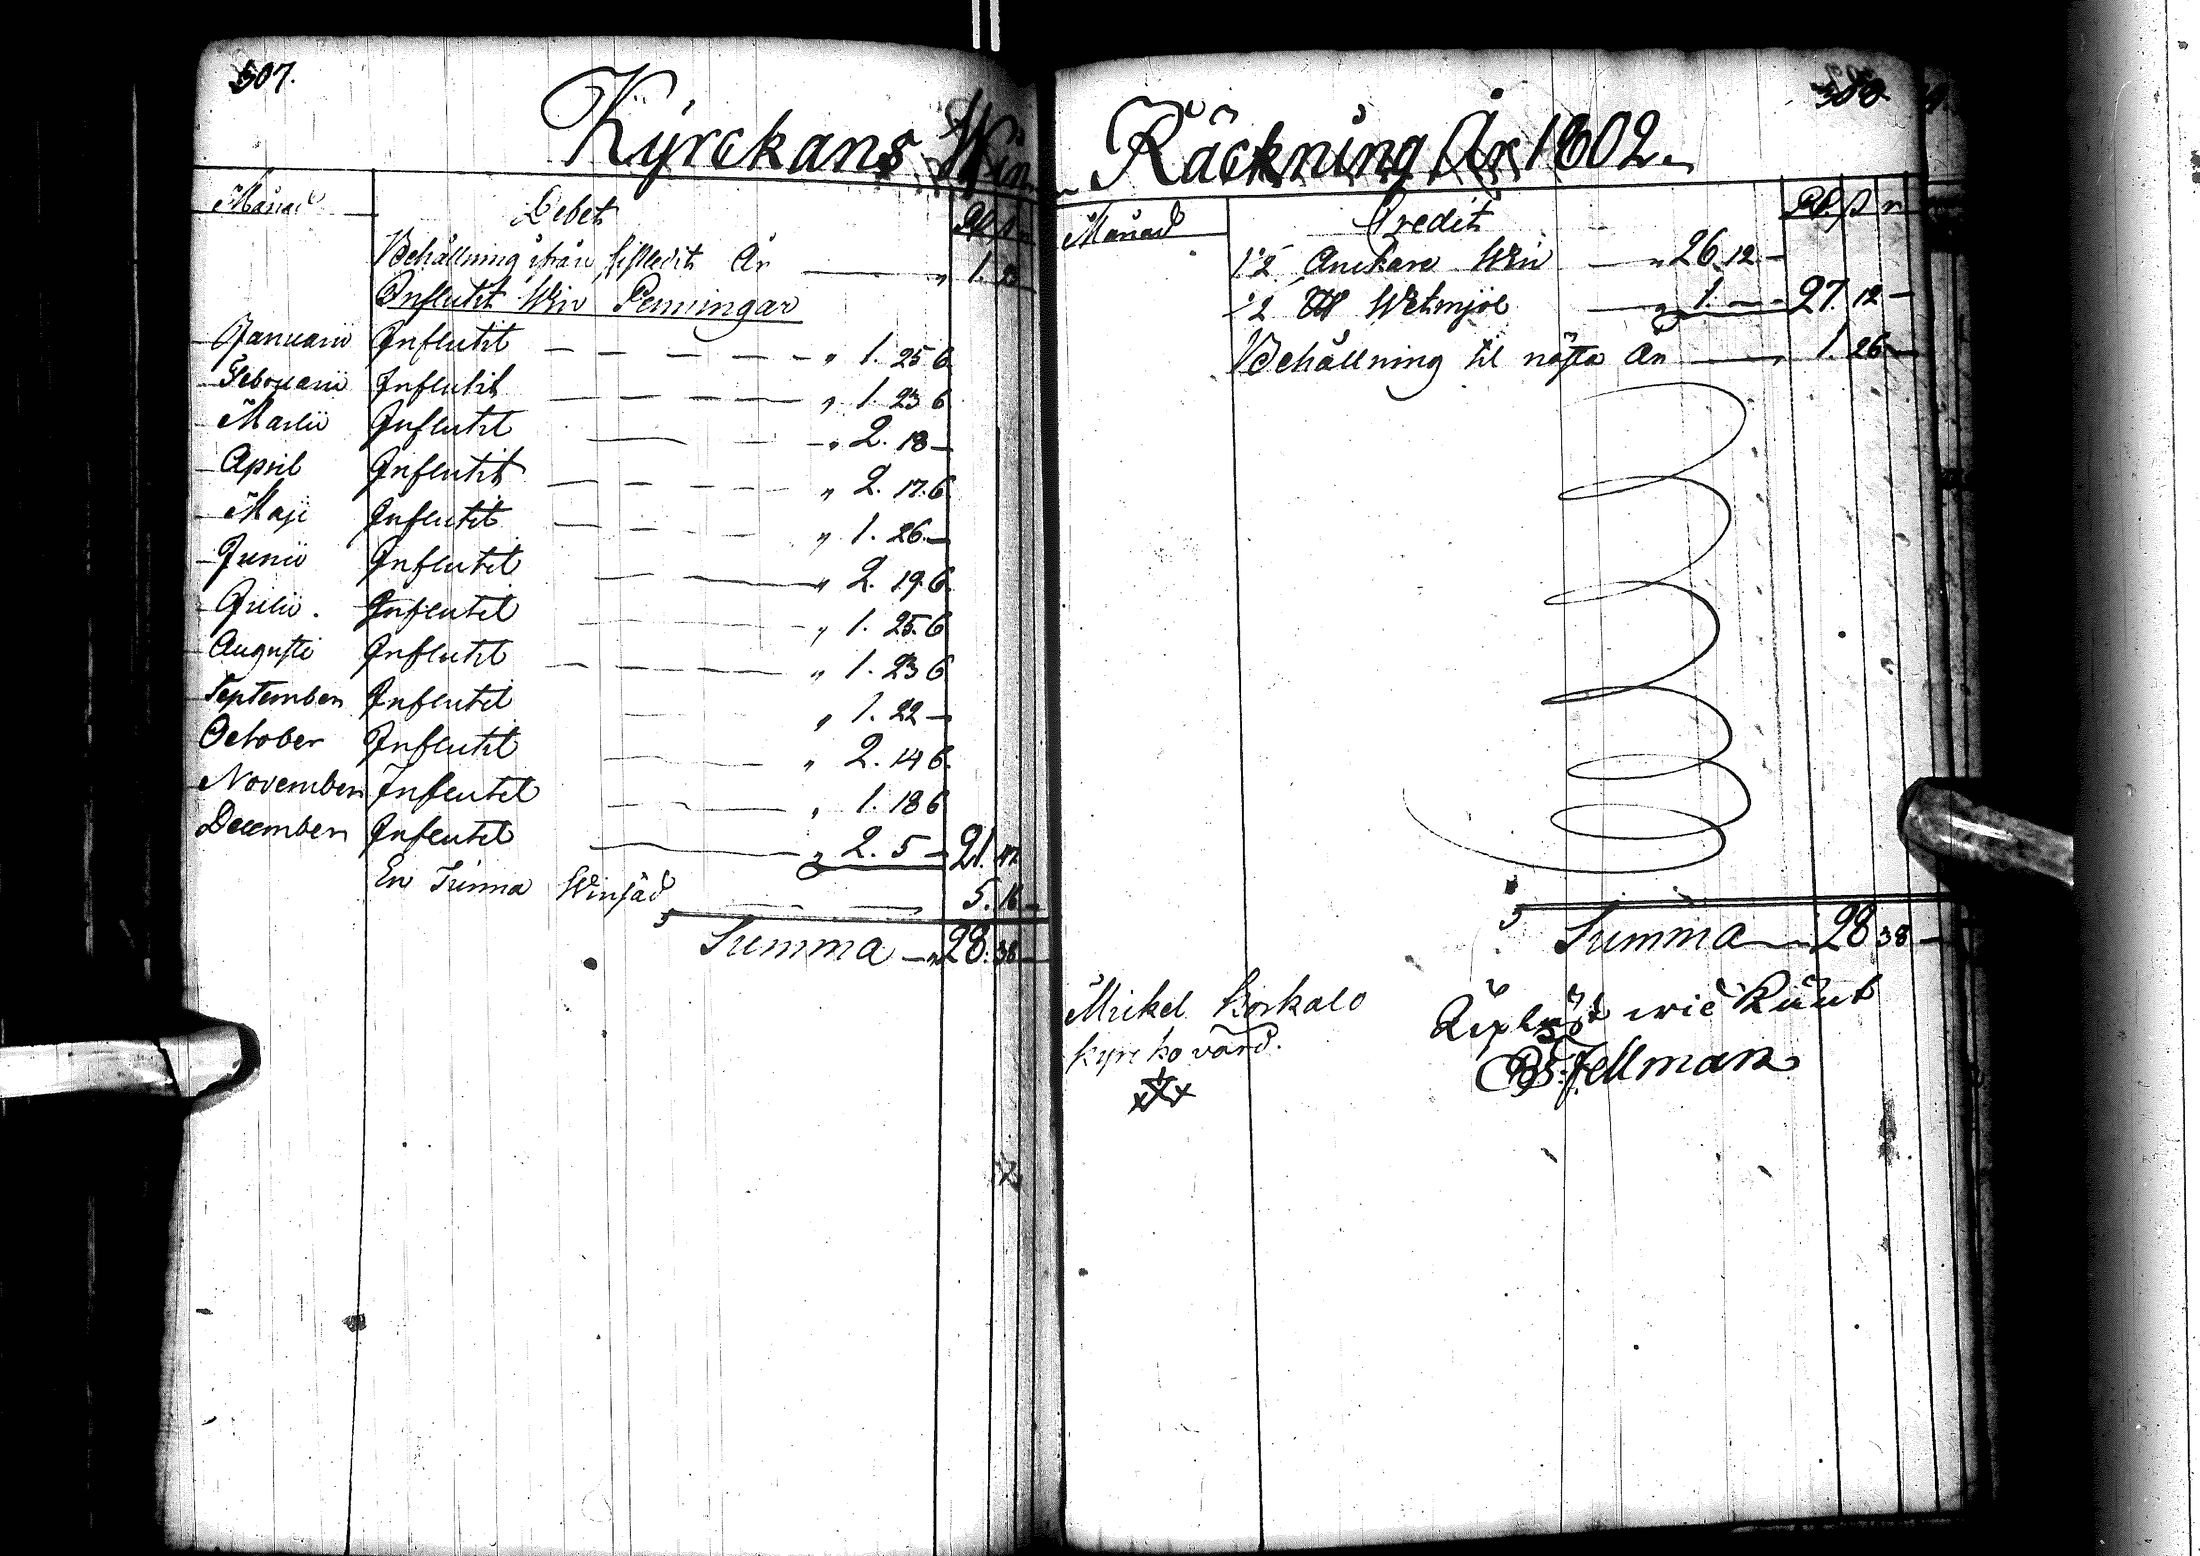 507.
Kyrckans Win
Månad Debet Rd ß r
Behållning ifrån sistledit År — " 1. 23
Influtit Win Penningar
Januarii Influtit — " 1. 25 6
Februarii Influtit — " 1. 23 6
Martii Influtit — " 2. 18 —
April Influtit — " 2. 17. 6
Maji Influtit — " 1. 26. —
Junii Influtit — " 2. 19. 6
Julii. Influtit — " 1. 25. 6
Augusti Influtit — " 1. 23 6
September Influtit — " 1. 22 —
October Influtit — " 2. 14 6
November Influtit — " 1. 18 6
December Influtit — " 2. 5 — 21. 47
En Tunna Winsäd — 5. 16 —
Summa — " 28. 38 —
508
Räckning År 1802.
Månad Credit Rd. ß r
12 Anckare Win — " 26. 12 —
12 Wetmjöl — " 1. — — 27. 12 —
Behållning til nästa År — " 1. 26 —
Summa — 28 38 —
Mickel Korkalo
kyrkovärd.
Upläst wid
Fellman